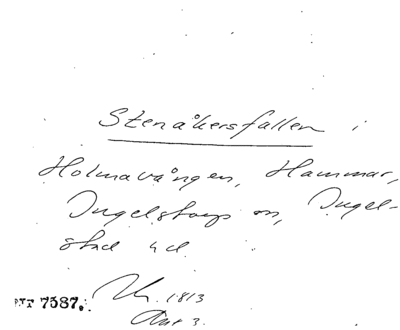 Stenåkersfallen i
Holmavången, Hammar,
Ingelstorps sn, Ingel-
stad hd.
1813
7387.